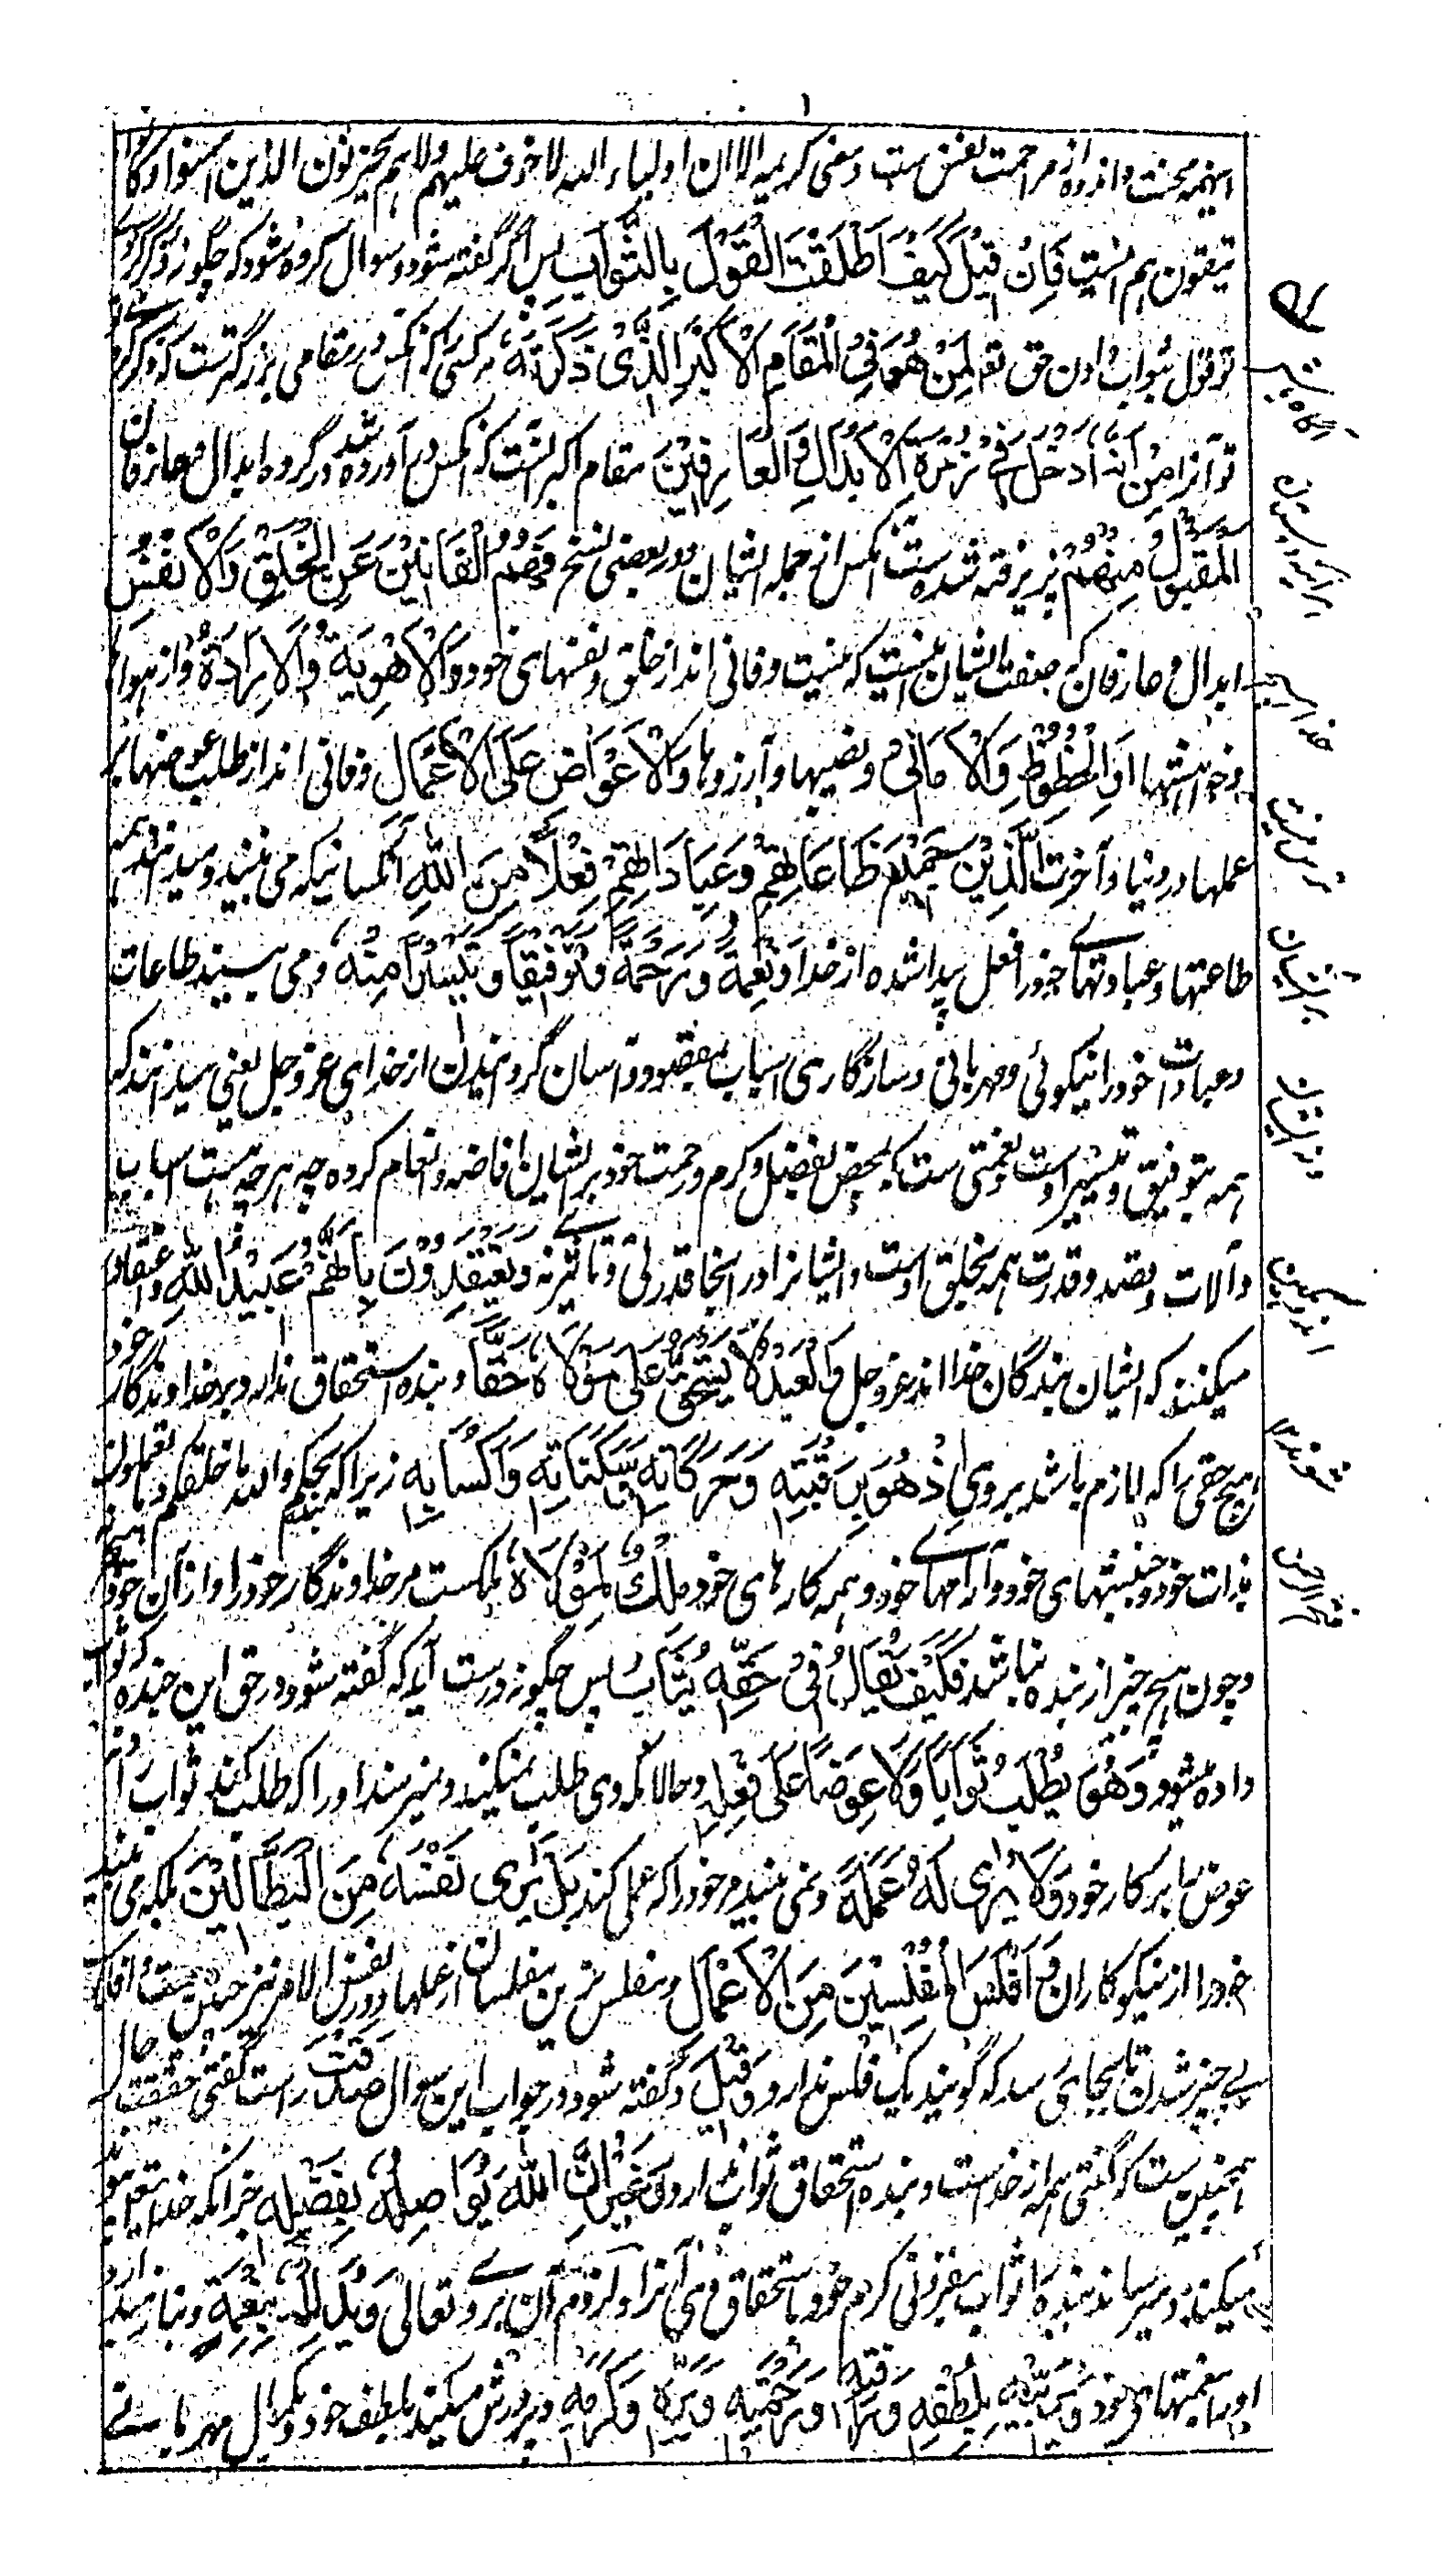 اینهمه محنت و اندوه از مزاحمت نفس ست و معنی کریمه الا ان اولیاء الله لا خوف علیهم ولا هم یحزنون الذین امنوا وکانوا
یتقون هم اینست فَاِنْ قِیْلَ کَیْفَ اَطْلَقْتَ الْقَوْلَ بِالثَّوَابِ پس اگر گفته شود و سوال کرده شود که چگونه ذکر کردی
تو قول بثواب دادن حق تعه لِمَنْ هُوَ فِی الْمَقَامِ الْاَکْبَرِ الَّذِیْ ذَکَرْتَهُ مر کسی را که آنکس در مقامی بزرگترست که ذکر کردی
تو آنرا مِنْ اَنَّهُ اُدْخِلَ فِیْ زُمْرَةِ الْاَبْدَالِ وَالْعَارِفِیْنَ مقام اکبر آنست که آنکس در آورده شد در گروه ابدال و عارفان
الْمَقْبُوْلُ مِنْهُمْ پذیرفته شده ست آنکس از جمله ایشان و در بعضی نسخ فَهُمُ الْفَانِیْنَ عَنِ الْخَلْقِ وَالْاَنْفُسِ
ابدال و عارفان که صفت ایشان اینست که نیست و فانی اند از خلق و نفسهای خود وَالْاَهْوِیَةِ وَالْاِرَادَةِ و از هواها
و خواهشها وَالْحُظُوْظِ وَالْاَمَانِیْ و نصیبها و آرزوها وَالْاَعْوَاضِ عَلَی الْاَعْمَالِ و فانی اند از طلب عوضها بر
عملها در دنیا و آخرت الَّذِیْنَ جَمِیْعُ طَاعَاتِهِمْ وَعِبَادَاتِهِمْ فِعْلًا مِنَ اللهِ آنکسانیکه می بینند و میدانند همه
طاعتها و عبادتهای خود را فعل پیدا شده از خدا وَنِعْمَةً وَرَحْمَةً وَتَوْفِیْقًا وَتَیْسِیْرًا مِنْهُ و می بینند طاعات
و عبادات خود را نیکوئی و مهربانی و سازگاری اسباب بمقصود و آسان گردانیدن از خدای عز وجل یعنی میدانند که
همه بتوفیق و تیسیر اوست و نعمتی ست که بمحض بفضل و کرم و رحمت خود بر ایشان افاضه و انعام کرده چه هر چه هست اسباب
و آلات و قصد و قدرت همه بخلق اوست و ایشانرا در اینجا قدرتی و تاثیری نه وَیَعْتَقِدُوْنَ بِاَنَّهُمْ عَبِیْدُ اللهِ و اعتقاد
میکنند که ایشان بندگان خدا اند عز وجل وَالْعَبْدُ لَا یَسْتَحِقُّ عَلٰی مَوْلَاهُ حَقًّا و بنده استحقاق ندارد بر خداوندگار خود
هیچ حقی را که لازم باشد بر وی اِذْ هُوَ بِرَقَبَتِهِ وَحَرَکَاتِهِ وَسَکَنَاتِهِ وَاَکْسَابِهِ زیراکه بحکم والله خلقکم وما تعملون بنده
بذات خود و جنبشهای خود و آرامهای خود و همه کارهای خود مِلْكٌ لِمَوْلَاهُ ملکست مر خداوندگار خود را و از آن خود هیچ نه
و چون هیچ چیز از بنده نباشد فَکَیْفَ یُقَالُ فِیْ حَقِّهِ یُثَابُ پس چگونه درست آید که گفته شود در حق این چنین بنده که ثواب
داده میشود وَهُوَ یُطْلَبُ ثَوَابًا وَلَا عِوَضًا عَلٰی فِعْلِهِ و حالانکه وی طلب نمیکند و نمیرسد او را که طلب کند ثواب را و نه
عوض را بر کار خود وَلَا یَرٰی لَهُ عَمَلَهُ و نمی بیند مر خود را که عمل کند بَلْ یَرٰی نَفْسَهُ مِنَ الْبَطَّالِیْنَ بلکه می بیند
خود را از نیکوکاران وَاَفْلَسَ الْمُفْلِسِیْنَ مِنَ الْاَعْمَالِ و مفلس ترین مفلسان از عملها و در نفس الامر نیز چنین ست و افلاس
بے چیز شدن تا بجای رسد که گویند یک فلس ندارد وَقِیْلَ و گفته شود در جواب این سوال صَدَقْتَ راست گفتی حقیقت حال
همچنین ست که گفتی همه از خداست و بنده استحقاق ثواب ندارد غَیْرَ اَنَّ اللهَ یُوَاصِلُهُ بِفَضْلِهِ جز آنکه خدا تعه پیوند
میکند و میرساند بنده را ثواب بفزونی کرم خود نه باستحقاق وی آنرا و لزوم آن بر وی تعالی وَیُدَلِّلُهُ بِنِعْمَةٍ و بناز میدارد
او را بنعمتهای خود وَیُرَبِّیْهِ بِلُطْفِهِ وَرَأْفَتِهِ وَرَحْمَتِهِ وَبِرِّهِ وَکَرَمِهِ و پرورش میکند بلطف خود و بکمال مهربانی